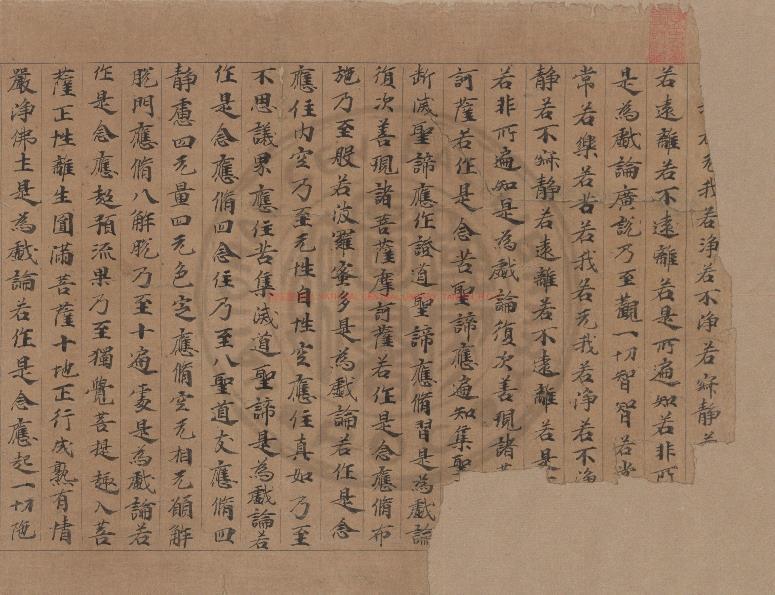 无我若淨若不淨若寂静若
若遠離若不遠離若是所遍知若非所
是為戲論廣說乃至觀一切智智若常
常若樂若苦若我若无我若淨若不淨
静若不寂静若遠離若不遠離若是
若非所遍知是為戲論復次善現諸菩
訶薩若作是念苦聖諦應遍知集聖
断滅聖諦應作證道聖諦應脩習是為戲論
復次善現諸菩薩摩訶薩若作是念應脩布
施乃至般若波羅蜜多是為戲論若作是念
應住内空乃至无性自性空應住真如乃至
不思議界應住苦集滅道聖諦是為戲論若
作是念應脩四念住乃至八聖道支應脩四
静慮四无量四无色定應脩空无相无願解
脫門應脩八解脫乃至十遍處是為戲論若
作是念應超預流果乃至獨覺菩提趣入菩
薩正性離生圓滿菩薩十地正行成熟有情
嚴淨佛土是為戲論若作是念應起一切陁